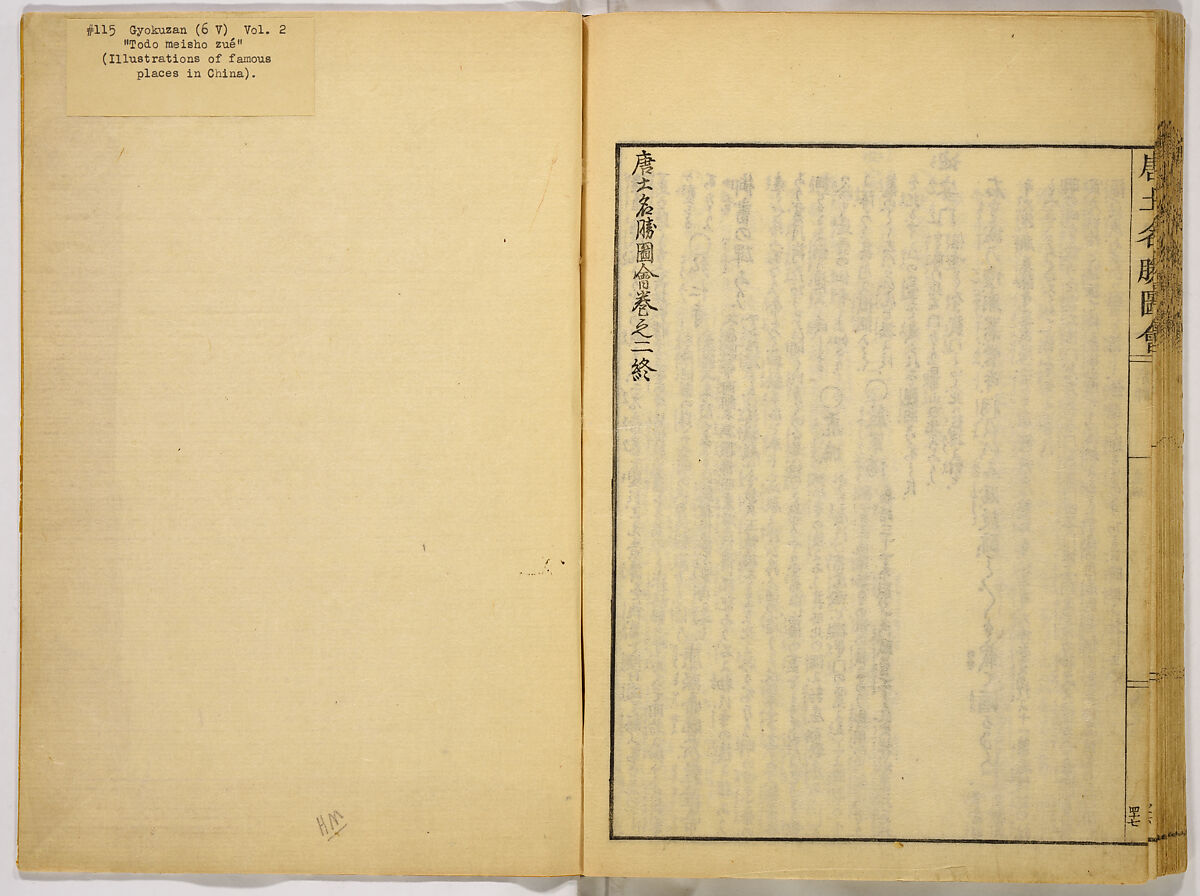 #115 Gyokuzan (6 V) Vol. 2
"Todo meisho zué"
(Illustrations of famous
places in China).
HM
唐土名勝圖會卷之二終
唐土名勝圖會
四十七